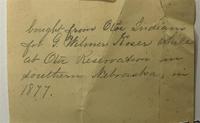 bought from Otoe Indians
for G. Wilmer Koser while
at Otoe Reservation in
southern Nebraska, in
1877.